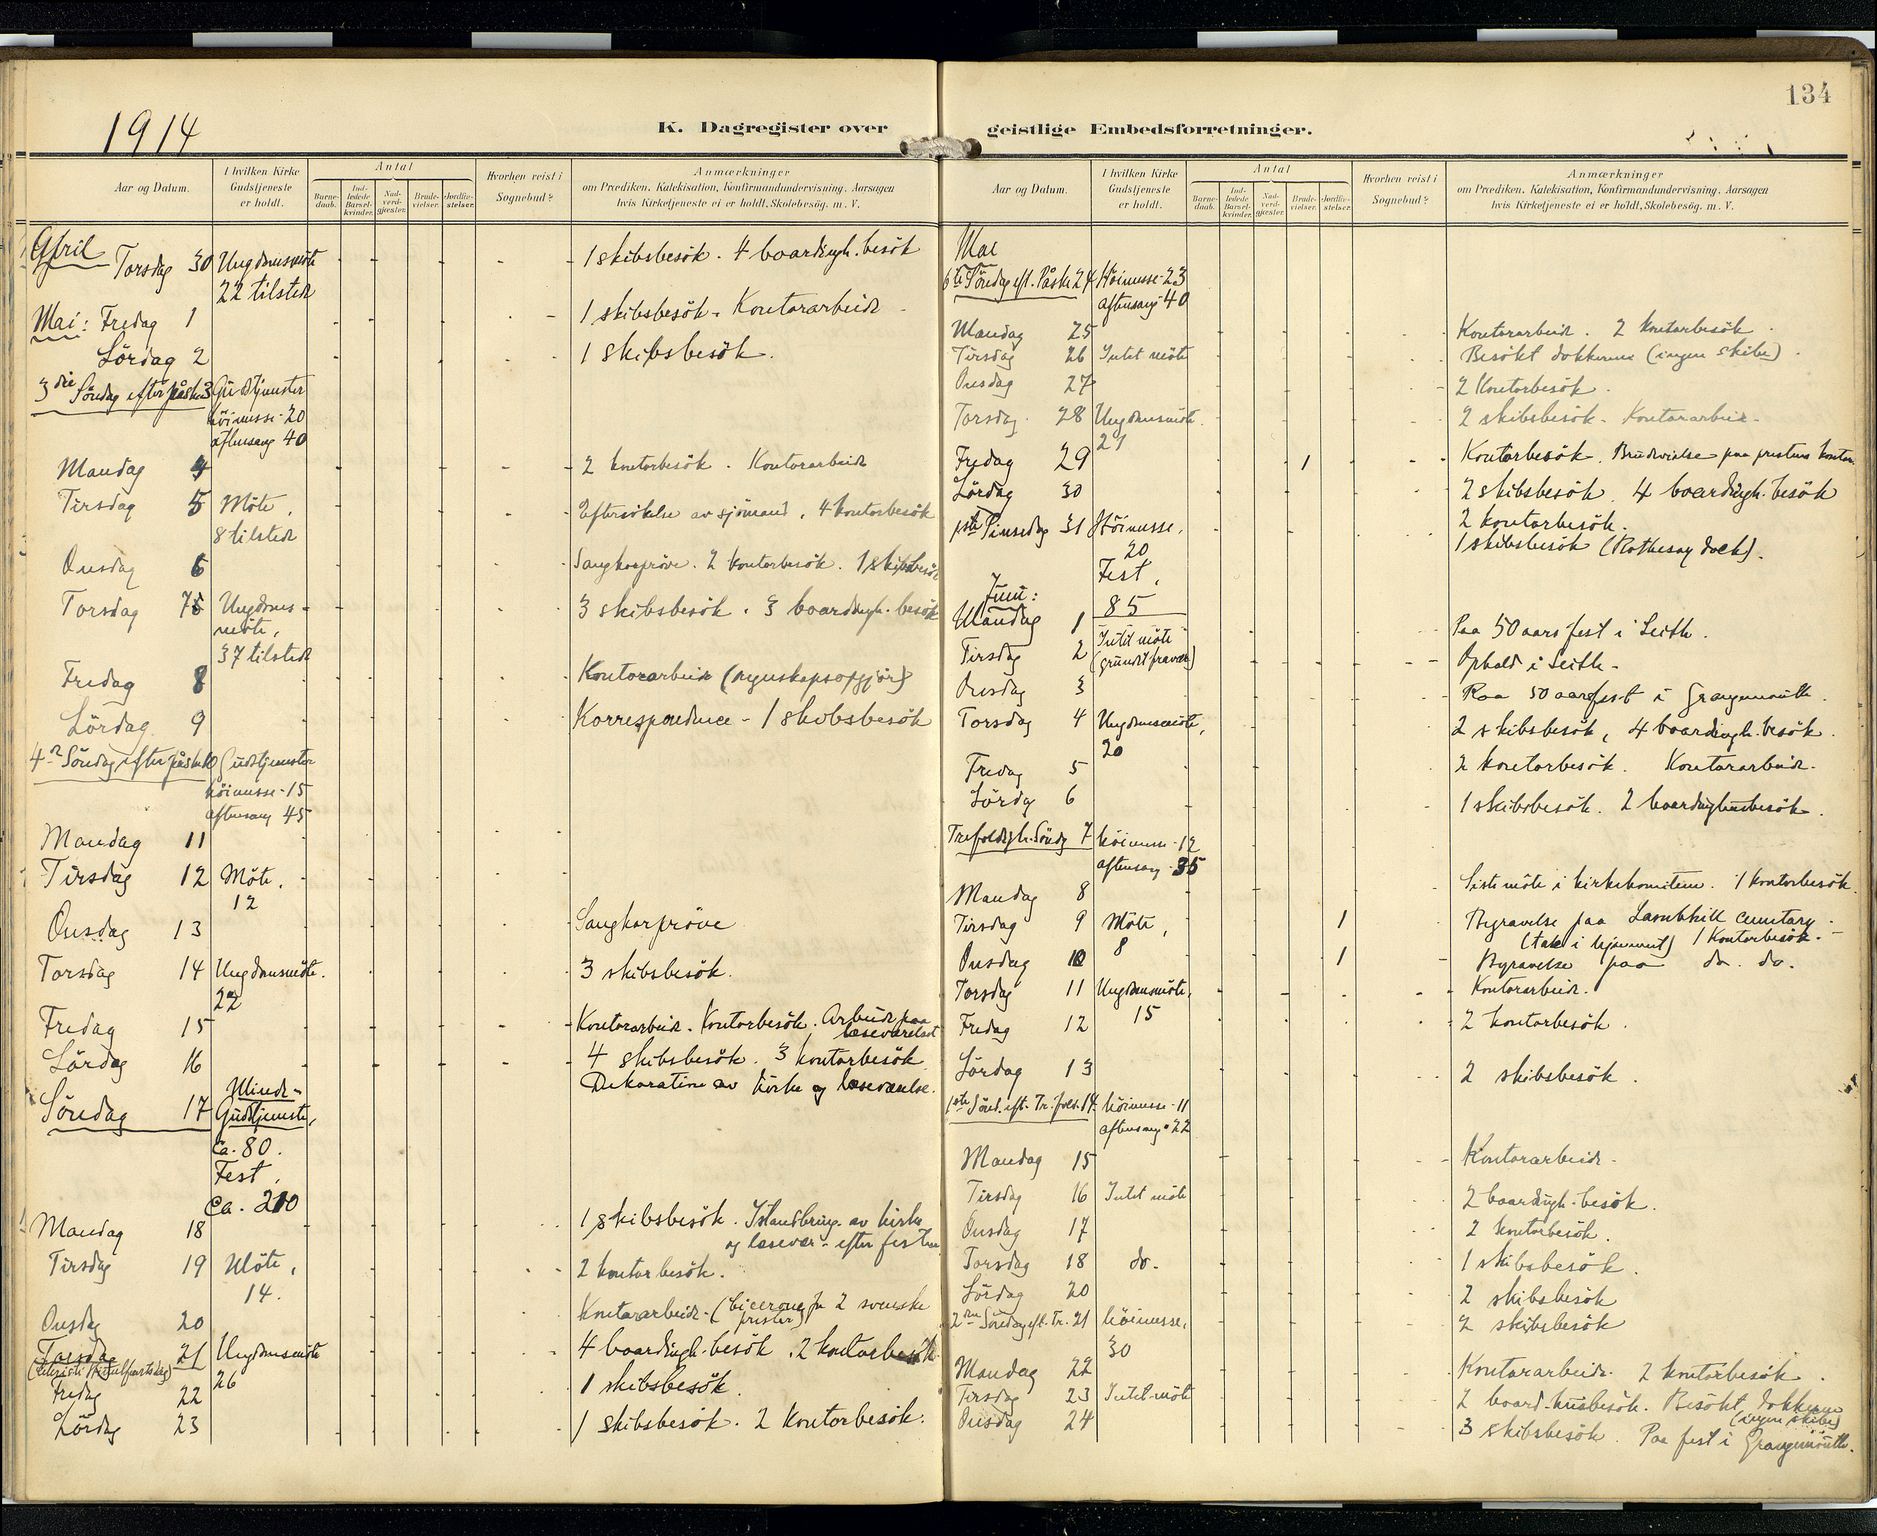 134
1914
K. Dagregister over geistlige Embedsforretninger.
Aar og Datum.
I hvilken Kirke Gudstjeneste er holdt.
Antal
Barne-daab.
Ind-ledede Barsel-kvinder.
Nad-verd-gjester.
Brude-vielser.
Jordfæ-stelser.
Hvorhen reist i Sognebud?
Anmærkninger
om Prædiken, Katekisation, Konfirmandundervisning, Aarsagen
hvis Kirketjeneste ei er holdt, Skolebesøg. m. V.
April Torsdag 30 Ungdomsmöte 1 skibsbesök. 4 boardingh. besök
22 tilstede
Mai: Fredag 1 1 skibsbesök - Kontorarbeide
Lördag 2 1 skibsbesök.
3die Söndag efter påske 3 Gudstjenester
höimesse - 20
aftensang 40
Mandag 4 2 kontorbesök. Kontorarbeide
Tirsdag 5 Möte, Eftersökelse av sjömand, 4 kontorbesök
8 tilstede
Onsdag 6 Sangkorpröve. 2 kontorbesök. 1 skibsbesök
Torsdag 7 Ungdoms- 3 skibsbesök. 3 boardingh. besök
möte,
37 tilstede
Fredag 8 Kontorarbeide (regnskapsopgjör)
Lördag 9 Korrespondence - 1 skibsbesök
4de Söndag efter påske 10 Gudstjenester
höimesse - 15
aftensang 45
Mandag 11
Tirsdag 12 Möte.
12
Onsdag 13 Sangkorpröve
Torsdag 14 Ungdomsmöte. 3 skibsbesök.
22
Fredag 15 Kontorarbeide. Kontorbesök. Arbeide paa
læseværelset
Lördag 16 4 skibsbesök. 3 kontorbesök
Dekoration av kirke og læseværelse.
Söndag 17 Minde-
Gudstjeneste,
ca. 80.
Fest,
Ca. 210
Mandag 18 1 skibsbesök. Istandbring. av kirke
og læsevær. efter festen
Tirsdag 19 Möte, 2 kontorbesök.
14.
Onsdag 20 Kontorarbeide - (cicerone for 2 svenske
prester)
Torsdag 21 Ungdomsmöte 4 boardingh. besök. 2 kontorbesök
(Kristi Himmelfartsdag) 26
Fredag 22 1 skibsbesök.
Lördag 23 1 skibsbesök. 2 Kontorbesök.
Aar og Datum.
I hvilken Kirke Gudstjeneste er holdt.
Antal
Barne-daab.
Ind-ledede Barsel-kvinder.
Nad-verd-gjester.
Brude-vielser.
Jordfæ-stelser.
Hvorhen reist i Sognebud?
Anmærkninger
om Prædiken, Katekisation, Konfirmandundervisning, Aarsagen
hvis Kirketjeneste ei er holdt, Skolebesøg. m. V.
Mai
6te Söndag eft. Påske 24 Höimesse - 23
aftensang - 40
Mandag 25 Kontorarbeid. 2 kontorbesök.
Tirsdag 26 Intet möte Besökt dokkerne (ingen skibe).
Onsdag 27 2 Kontorbesök.
Torsdag 28 Ungdomsmöte. 2 skibsbesök - Kontorarbeide -
21
Fredag 29 1 Kontorbesök. Brudevielse paa prestens kontor.
Lördag 30 2 skibsbesök. 4 boardingh. besök
1ste Pinsedag 31 Höimesse, 2 kontorbesök.
20 1 skibsbesök (Rothesay dock).
Fest,
85
Juni:
Mandag 1 Paa 50 aars fest i Leith.
Tirsdag 2 Intet möte (grundet fravær) Ophold i Leith -
Onsdag 3 Paa 50 aarsfest i Grangemouth.
Torsdag 4 Ungdomsmöte, 2 skibsbesök, 4 boardingh. besök.
20
Fredag 5 2 kontorbesök. Kontorarbeide.
Lördag 6 1 skibsbesök. 2 boardinghusbesök.
Trefoldigh. Söndag 7 höimesse - 12
aftensang - 35
Mandag 8 Siste möte i kirkekomiteen. 1 kontorbesök.
Tirsdag 9 Möte, 1 Begravelse paa Lambhill cemetary.
8 (tale i hjemmet) 1 Kontorbesök. -
Onsdag 10 1 Begravelse paa do. do.
Torsdag 11 Ungdomsmöte, Kontorarbeide.
15
Fredag 12 2 kontorbesök.
Lördag 13 2 skibsbesök.
1ste Sönd. eft. Tr. fold. 14 höimesse - 11
aftensang - 22
Mandag 15 Kontorarbeide -
Tirsdag 16 Intet möte 2 boardingh. besök.
Onsdag 17 2 kontorbesök.
Torsdag 18 do. 1 skibsbesök.
Lördag 20 2 skibsbesök
2den Söndag eft. Tr. 21 höimesse, 2 skibsbesök
30
Mandag 22 Kontorarbeide. 2 kontorbesök.
Tirsdag 23 Intet möte 2 board. husbesök. Besökt dokkerne
(ingen skibe)
Onsdag 24 3 skibsbesök. Paa fest i Grangemouth.